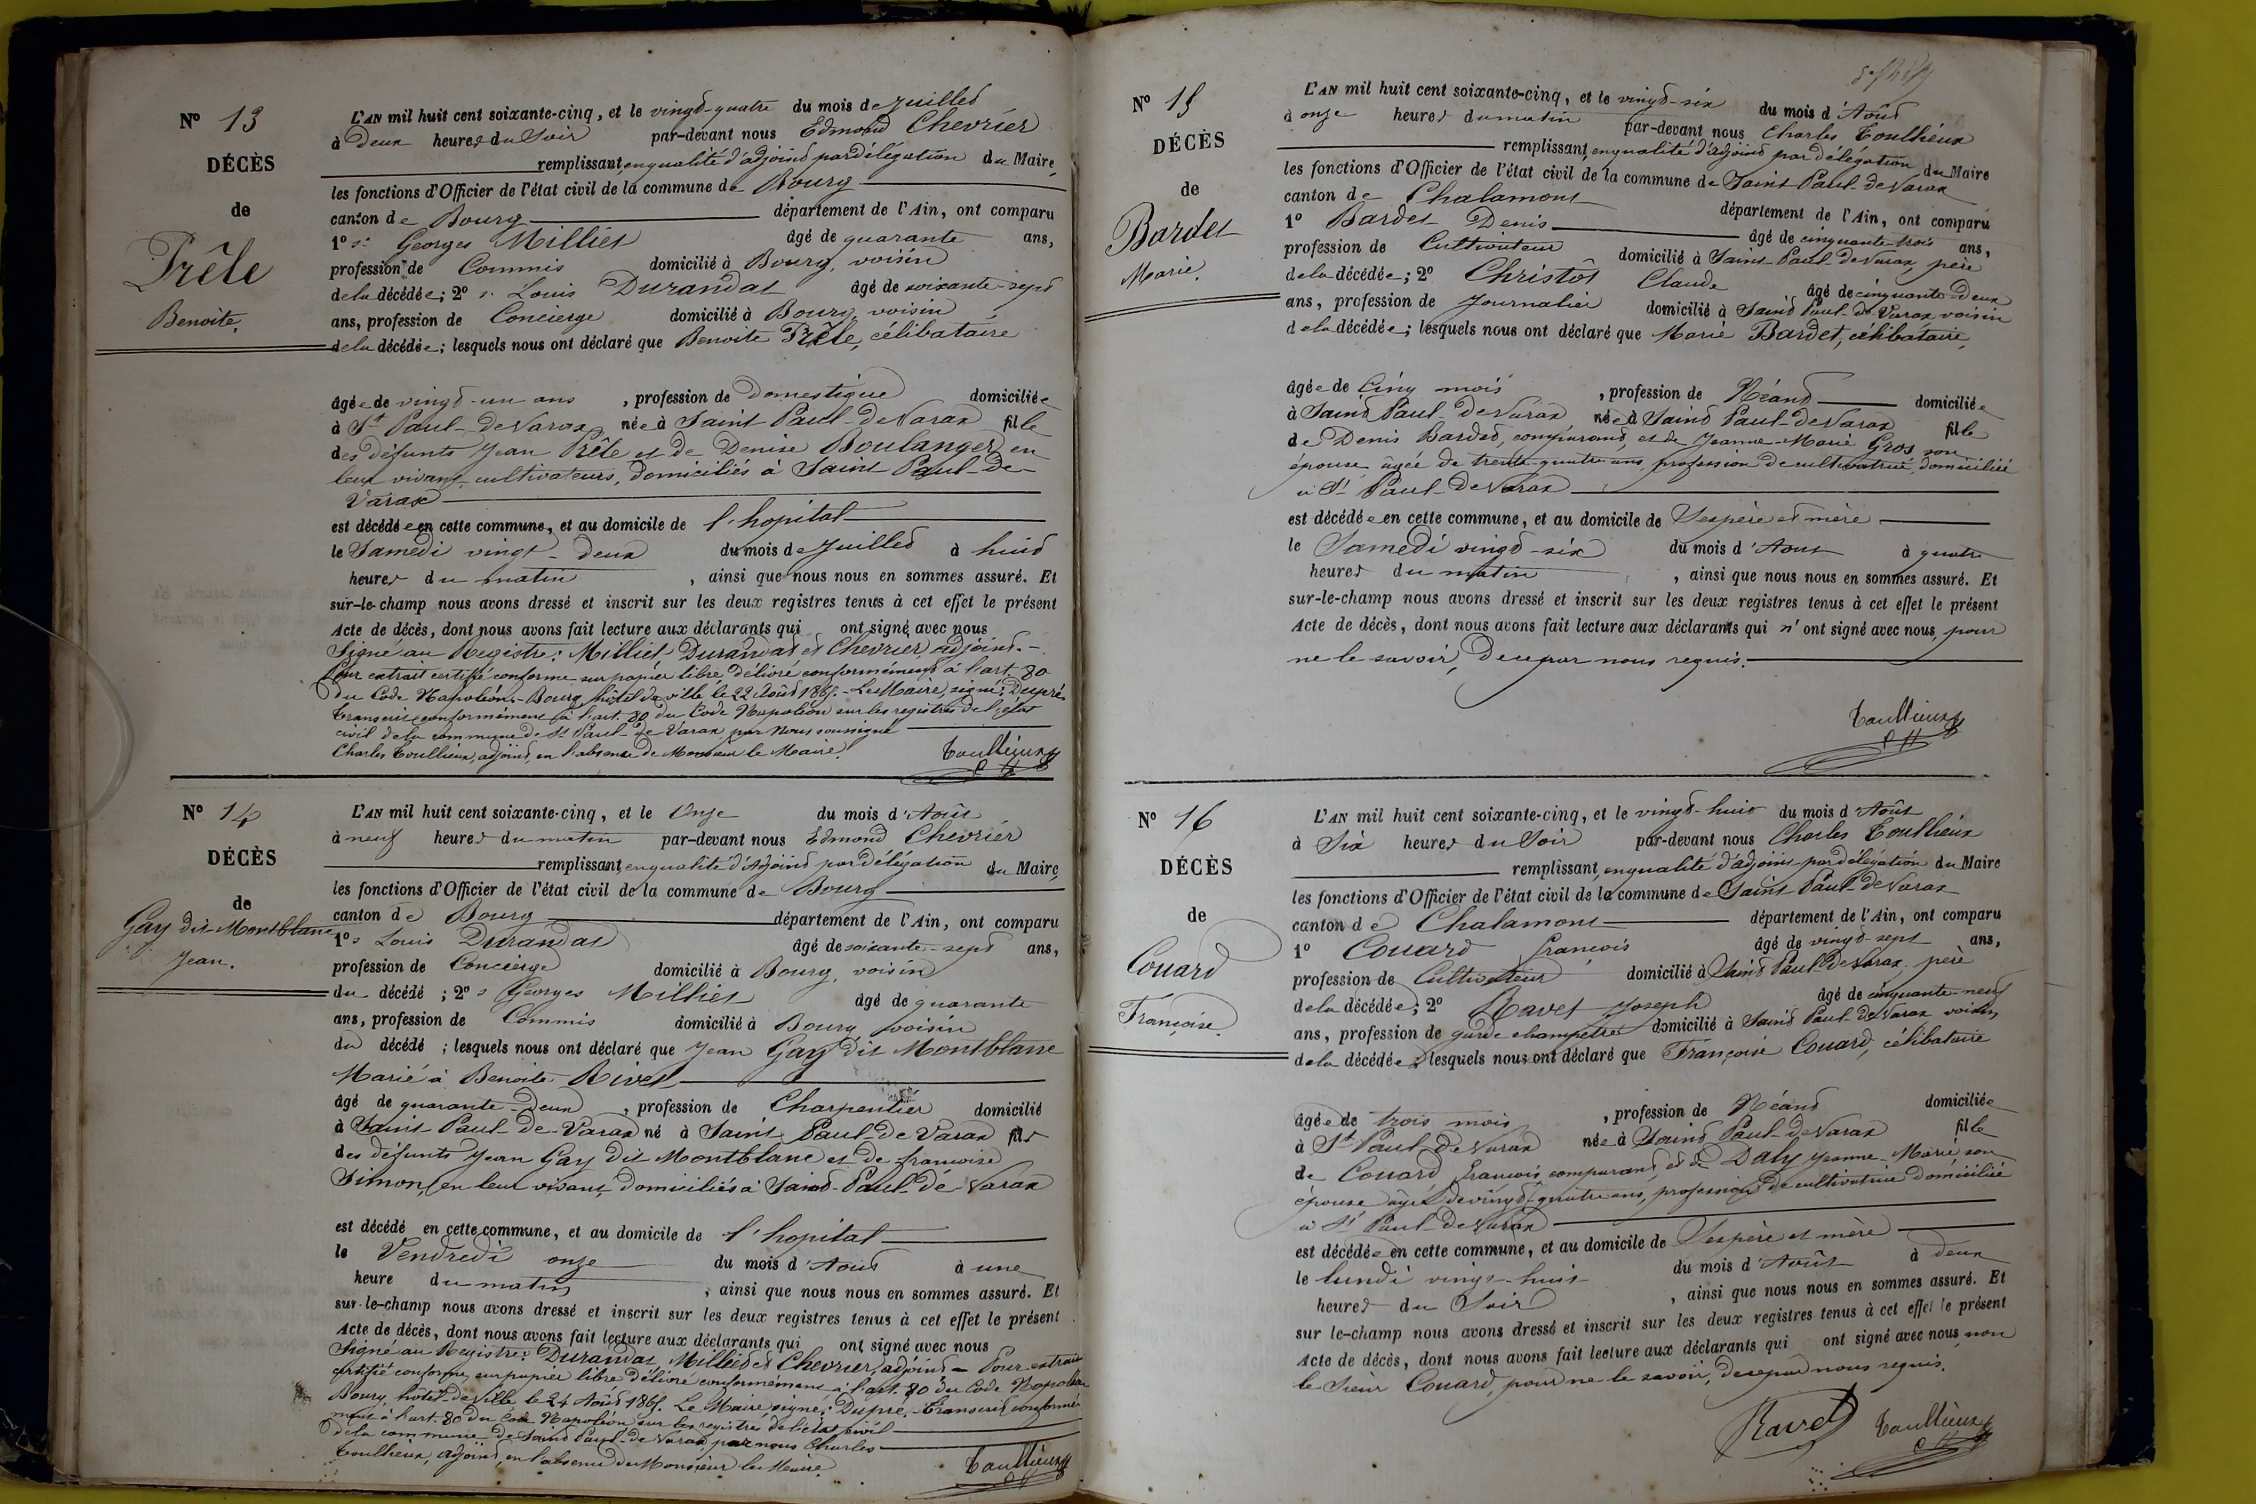 N° 13
DÉCÈS
de
Prêle
Benoite.
L'AN mil huit cent soixante-cinq, et le vingt-quatre du mois de Juillet
à Deux heures du Soir par-devant nous Edmond Chevrier
remplissant, en qualité d'adjoint par délégation du Maire,
les fonctions d'Officier de l'état civil de la commune de Bourg
canton de Bourg département de l'Ain, ont comparu
1° s. Georges Milliet âgé de quarante ans,
profession de Commis domicilié à Bourg, voisin
de la décédée; 2° s. Louis Durandat âgé de soixante-sept
ans, profession de Concierge domicilié à Bourg, voisin
de la décédée; lesquels nous ont déclaré que Benoite Prêle, célibataire
âgée de vingt-un ans, profession de Domestique domiciliée
à St Paul-de Varax née à Saint Paul-de Varax fille
des défunts Jean Prêle et de Denise Boulanger, en
leur vivant cultivateurs, domiciliés à Saint Paul-de-
Varax
est décédée en cette commune, et au domicile de l'hopital
le Samedi vingt-deux du mois de Juillet à huit
heures du matin, ainsi que nous nous en sommes assuré. Et
sur-le-champ nous avons dressé et inscrit sur les deux registres tenus à cet effet le présent
Acte de décès, dont nous avons fait lecture aux déclarants qui ont signé avec nous
Signé au Registre: Milliet Durandat et Chevrier, adjoint. -
Pour extrait certifié conforme sur papier libre délivré conformément à l'art. 80
du Code Napoléon. - Bourg hôtel de ville le 22 Août 1865. - Le Maire, signé: Dupré
Transcrit conformément à l'art. 80 du Code Napoléon sur les registres de l'état
civil de la commune de St Paul-de Varax par Nous soussigné
Charles Toullieux, adjoint, en l'absence de Monsieur le Maire.
Toullieux
N° 14
DÉCÈS
de
Gay dit Montblanc
Jean.
L'AN mil huit cent soixante-cinq, et le Onze du mois d'Août
à neuf heures du matin par-devant nous Edmond Chevrier
remplissant, en qualité d'Adjoint par délégation du Maire,
les fonctions d'Officier de l'état civil de la commune de Bourg
canton de Bourg département de l'Ain, ont comparu
1° s. Louis Durandat âgé de soixante-sept ans,
profession de Concierge domicilié à Bourg, voisin
du décédé; 2° s. Georges Milliet âgé de quarante
ans, profession de Commis domicilié à Bourg, voisin
du décédé; lesquels nous ont déclaré que Jean Gay dit Montblanc
Marié à Benoite Rivet
âgé de quarante-deux, profession de Charpentier domicilié
à Saint Paul-de-Varax né à Saint Paul-de Varax fils
des défunts Jean Gay dit Montblanc et de françoise
Simon, en leur vivant, domiciliés à Saint-Paul-de-Varax
est décédé en cette commune, et au domicile de l'hopital
le Vendredi onze du mois d'Août à une
heure du matin, ainsi que nous nous en sommes assuré. Et
sur-le-champ nous avons dressé et inscrit sur les deux registres tenus à cet effet le présent
Acte de décès, dont nous avons fait lecture aux déclarants qui ont signé avec nous
Signé au Registre: Durandat, Milliet et Chevrier, adjoint - Pour extrait
certifié conforme, sur papier libre délivré conformément à l'art. 80 du Code Napoléon
Bourg, hôtel-de-ville, le 24 Août 1865. Le Maire signé: Dupré. Transcrit conformé-
ment à l'art. 80 du Code Napoléon sur les registres de l'état civil
de la commune de Saint Paul-de Varax, par nous Charles
Toullieux, adjoint, en l'absence de Monsieur le Maire.
Toullieux
N° 15
DÉCÈS
de
Bardet
Marie.
L'AN mil huit cent soixante-cinq, et le vingt-six du mois d'Août
à onze heures du matin par-devant nous Charles Toullieux
remplissant, en qualité d'adjoint par délégation du Maire
les fonctions d'Officier de l'état civil de la commune de Saint Paul-de Varax
canton de Chalamont département de l'Ain, ont comparu
1° Bardet Denis âgé de cinquante-trois ans,
profession de Cultivateur domicilié à Saint-Paul-de Varax, père
de la décédée; 2° Christôt Claude âgé de cinquante-Deux
ans, profession de Journalier domicilié à Saint Paul-de Varax voisin
de la décédée; lesquels nous ont déclaré que Marie Bardet, célibataire,
âgée de Cinq mois, profession de Néant domiciliée
à Saint Paul-de Varax née à Saint Paul-de Varax fille
de Denis Bardet, comparant, et de Jeanne-Marie Gros son
épouse âgée de trente-quatre ans, profession de cultivatrice, domiciliée
à St Paul-de Varax
est décédée en cette commune, et au domicile de Ses père et mère
le Samedi vingt-six du mois d'Août à quatre
heures du matin, ainsi que nous nous en sommes assuré. Et
sur-le-champ nous avons dressé et inscrit sur les deux registres tenus à cet effet le présent
Acte de décès, dont nous avons fait lecture aux déclarants qui n'ont signé avec nous, pour
ne le savoir, De ce par nous requis.
Toullieux
N° 16
DÉCÈS
de
Couard
Françoise.
L'AN mil huit cent soixante-cinq, et le vingt-huit du mois d'Août
à Six heures du Soir par-devant nous Charles Toullieux
remplissant, en qualité d'adjoint par délégation du Maire
les fonctions d'Officier de l'état civil de la commune de Saint Paul-de Varax
canton de Chalamont département de l'Ain, ont comparu
1° Couard françois âgé de vingt-sept ans,
profession de Cultivateur domicilié à Saint Paul-de Varax, père
de la décédée; 2° Ravet Joseph âgé de cinquante-neuf
ans, profession de garde champêtre domicilié à Saint Paul-de Varax voisin
de la décédée; lesquels nous ont déclaré que Françoise Couard, célibataire
âgée de trois mois, profession de Néant domiciliée
à St Paul-de Varax née à Saint Paul-de Varax fille
de Couard françois, comparant, et de Daly Jeanne-Marie, son
épouse âgée de vingt-quatre ans, profession de cultivatrice domiciliée
à St Paul-de Varax
est décédée en cette commune, et au domicile de Ses père et mère
le lundi vingt-huit du mois d'Août à deux
heures du Soir, ainsi que nous nous en sommes assuré. Et
sur le-champ nous avons dressé et inscrit sur les deux registres tenus à cet effet le présent
Acte de décès, dont nous avons fait lecture aux déclarants qui ont signé avec nous, non
le Sieur Couard, pour ne le savoir, de ce par nous requis.
Ravet Toullieux